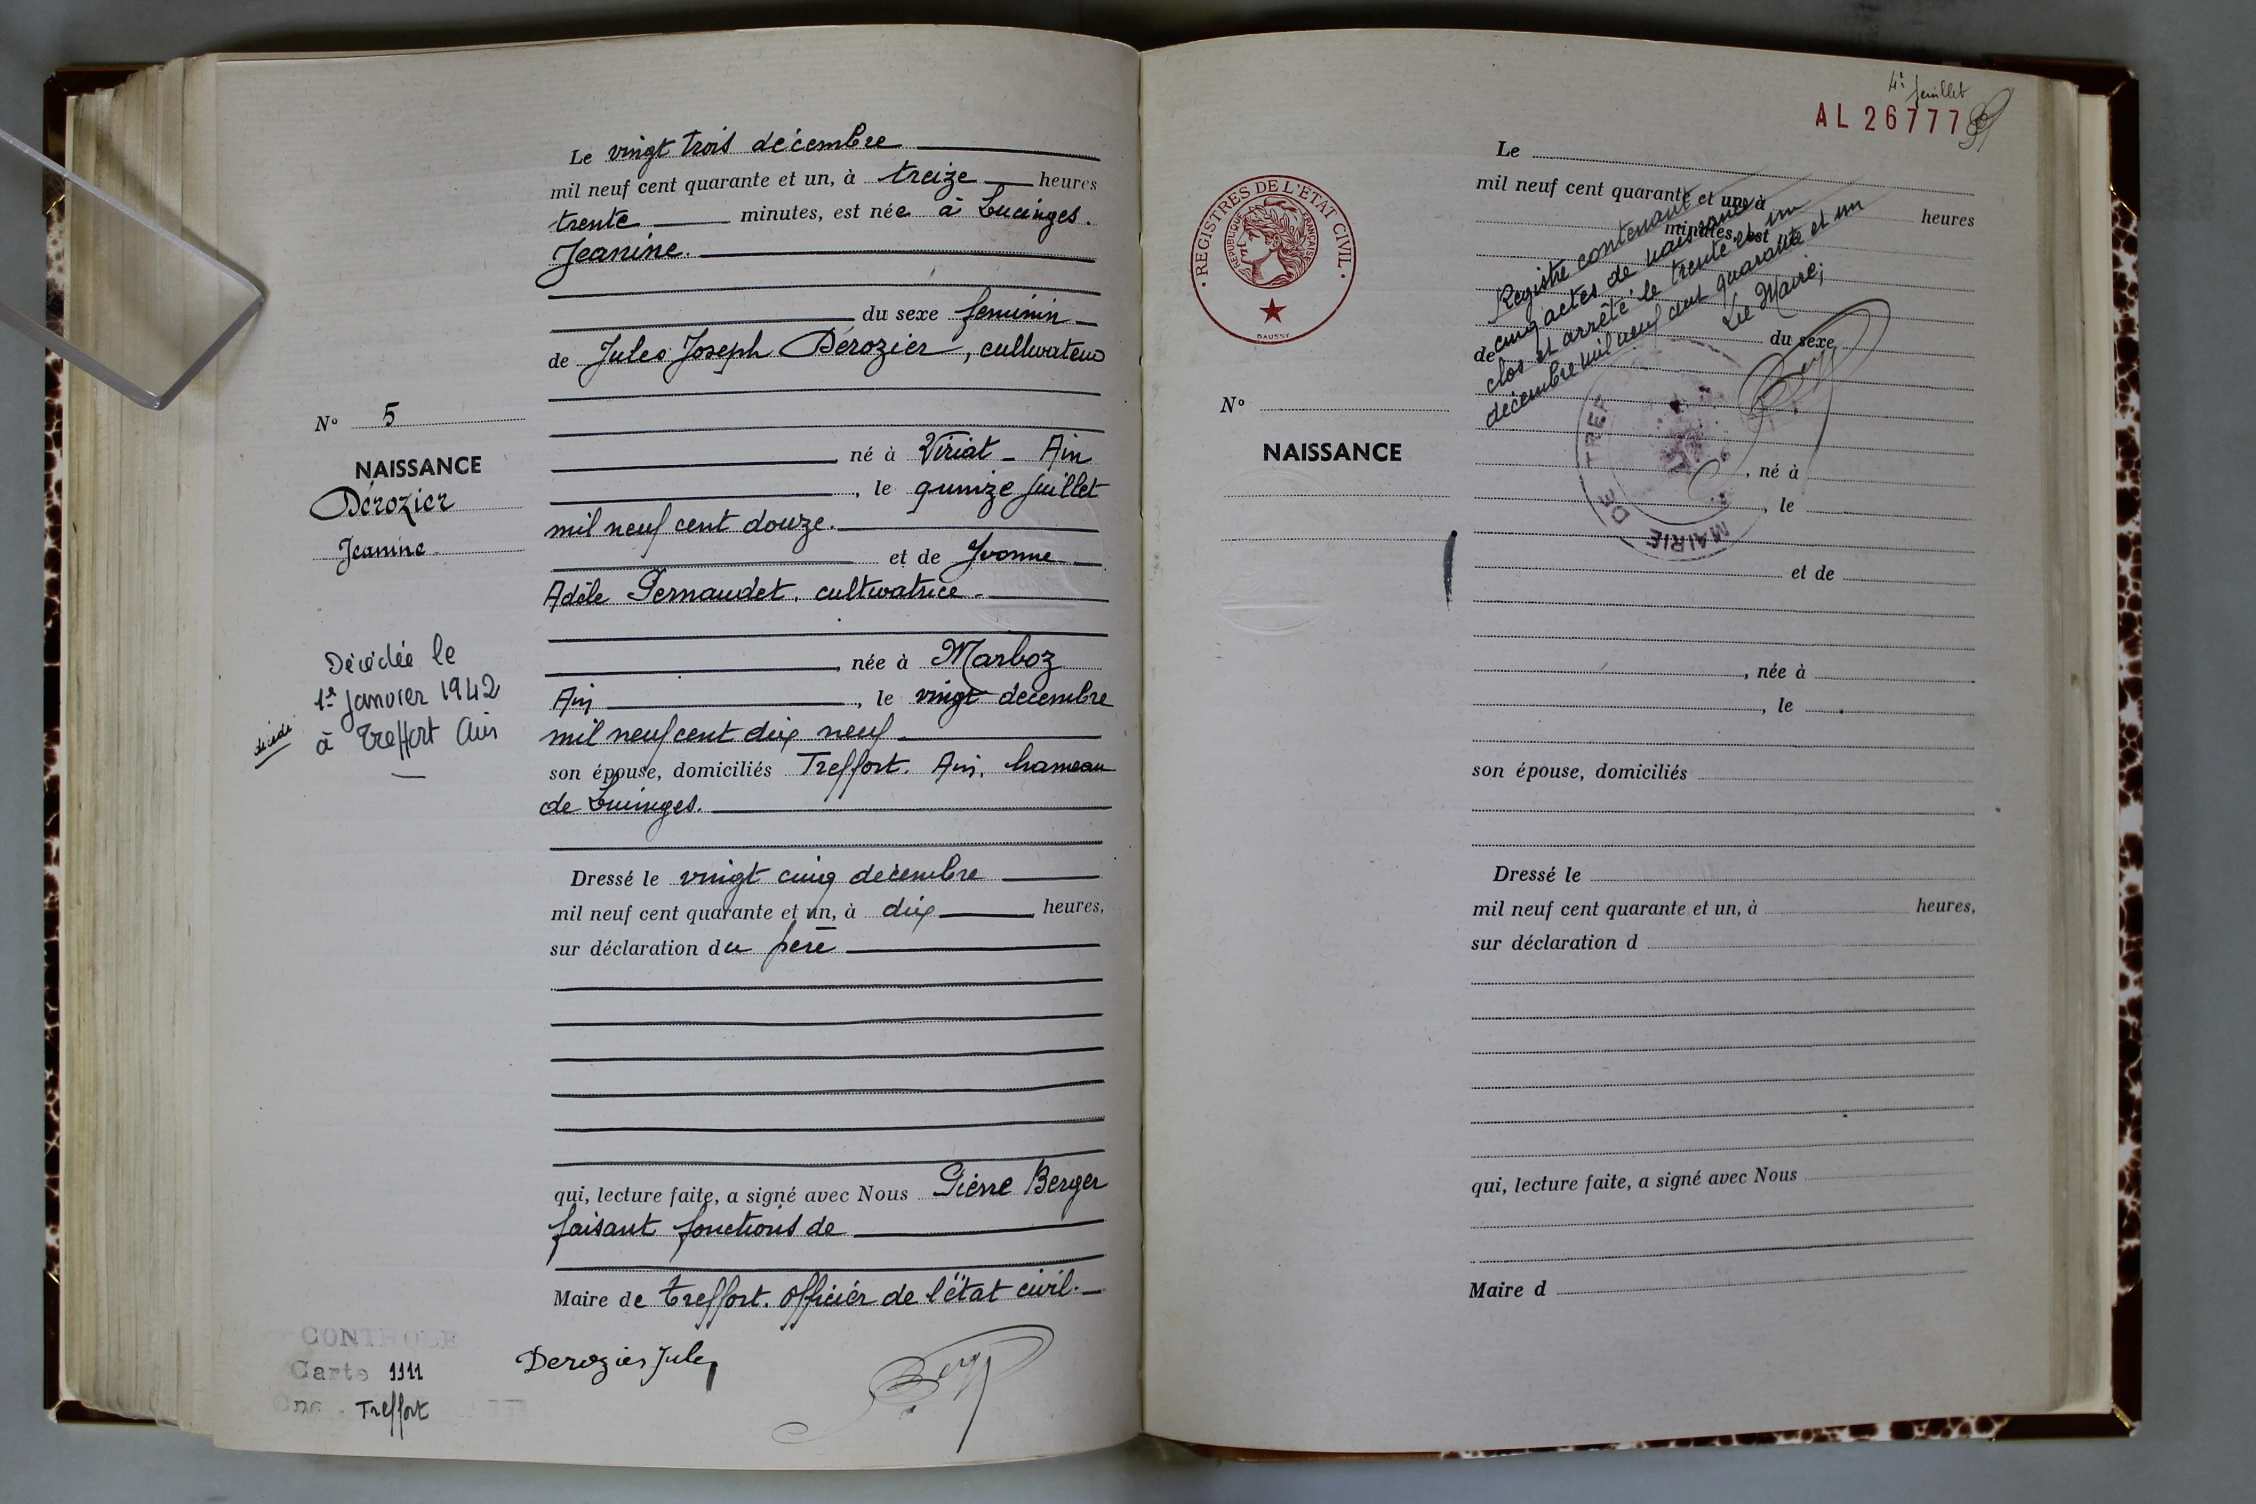 N° 5
NAISSANCE
Dérozier
Jeanine
Décédée le
1er Janvier 1942
à Treffort Ain
décédé
Le vingt trois décembre
mil neuf cent quarante et un, à treize heures
trente minutes, est née à Lucinges.
Jeanine.
du sexe feminin
de Jules Joseph Dérozier, cultivateur
né à Viriat - Ain
, le quinze juillet
mil neuf cent douze.
et de Yvonne
Adèle Pernaudet, cultivatrice
, née à Marboz
Ain, le vingt décembre
mil neuf cent dix neuf
son épouse, domiciliés Treffort. Ain, hameau
de Lucinges.
Dressé le vingt cinq décembre
mil neuf cent quarante et un, à dix heures,
sur déclaration du père
qui, lecture faite, a signé avec Nous Pierre Berger
faisant fonctions de
Maire de Treffort. Officier de l'état civil.
CONTROLE
Carte 1111
Treffort
Derozier Jules
4e feuillet
AL 26777
REGISTRES DE L'ETAT CIVIL
REPUBLIQUE FRANÇAISE
DAUSSY
N°
NAISSANCE
Le
mil neuf cent quarante et un, à heures
minutes, est né
du sexe
de
, né à
, le
et de
, née à
, le
son épouse, domiciliés
Dressé le
mil neuf cent quarante et un, à heures,
sur déclaration d
qui, lecture faite, a signé avec Nous
Maire d
Registre contenant
cinq actes de naissance
clos et arrêté le trente et un
décembre mil neuf cent quarante et un
Le Maire;
MAIRIE DE TREF